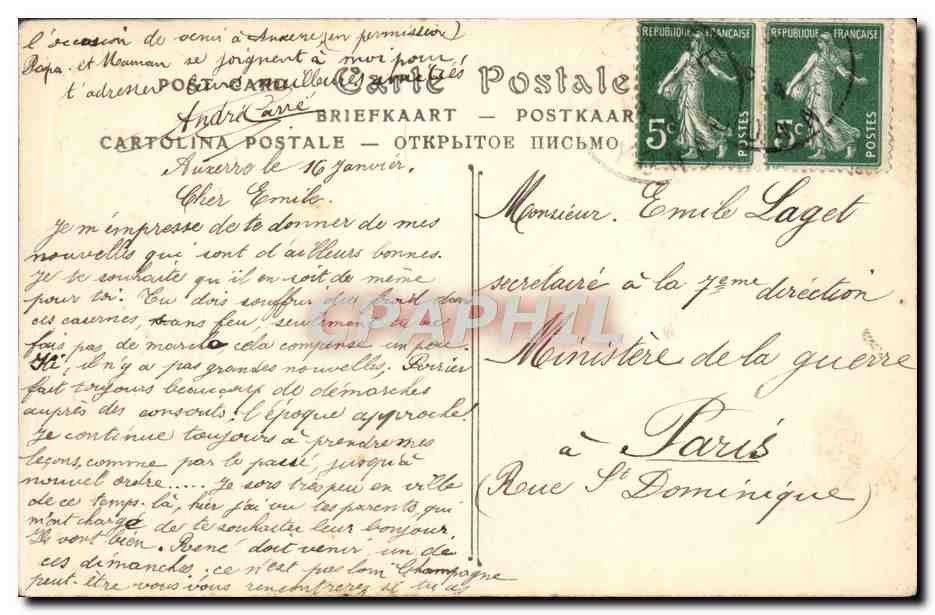 l'occasion de venir à Auxerre (en permission)
Papa et Maman se joignent à moi pour
t'adresser meilleures amitiés
André Carré
POST-CARD Carte Postale
BRIEFKAART - POSTKAART
CARTOLINA POSTALE - ОТКРЫТОЕ ПИСЬМО
REPUBLIQUE FRANÇAISE
5c POSTES
REPUBLIQUE FRANÇAISE
5c POSTES
Auxerre le 16 Janvier.
Cher Emile.
Je m'empresse de te donner de mes
nouvelles qui sont d'ailleurs bonnes.
Je te souhaite qu'il en soit de même
pour toi. Tu dois souffrir du froid dans
ces casernes, sans feu, seulement tu ne
fais pas de marche, cela compense un peu.
Ici, il n'y a pas grandes nouvelles. Poirier
fait toujours beaucoup de démarches
auprès des consouls! l'époque approche!
Je continue toujours à prendre mes
leçons, comme par le passé, jusqu'à
nouvel ordre..... Je sors très peu en ville
de ce temps-là, hier j'ai vu tes parents, qui
m'ont chargé de te souhaiter leur bonjour
Ils vont bien. René doit venir, un de
ces dimanches. ce n'est pas loin Champagne
peut-être vous vous rencontrerez si tu as
Monsieur. Emile Laget
secrétaire à la 7eme direction
Ministère de la guerre
à Paris
(Rue St Dominique)
CPAPHIL